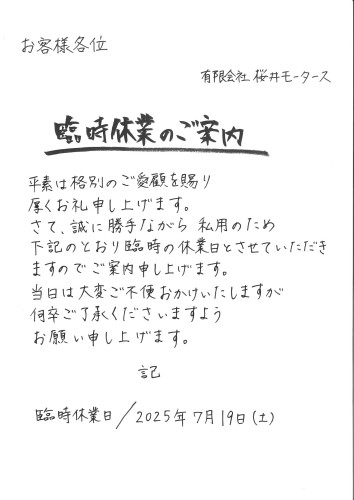 お客様各位
有限会社 桜井モータース
臨時休業のご案内
平素は格別のご愛顧を賜り
厚くお礼申し上げます。
さて、誠に勝手ながら 私用のため
下記のとおり臨時の休業日とさせていただき
ますのでご案内申し上げます。
当日は大変ご不便おかけいたしますが
何卒ご了承くださいますよう
お願い申し上げます。
記
臨時休業日/2025年7月19日(土)